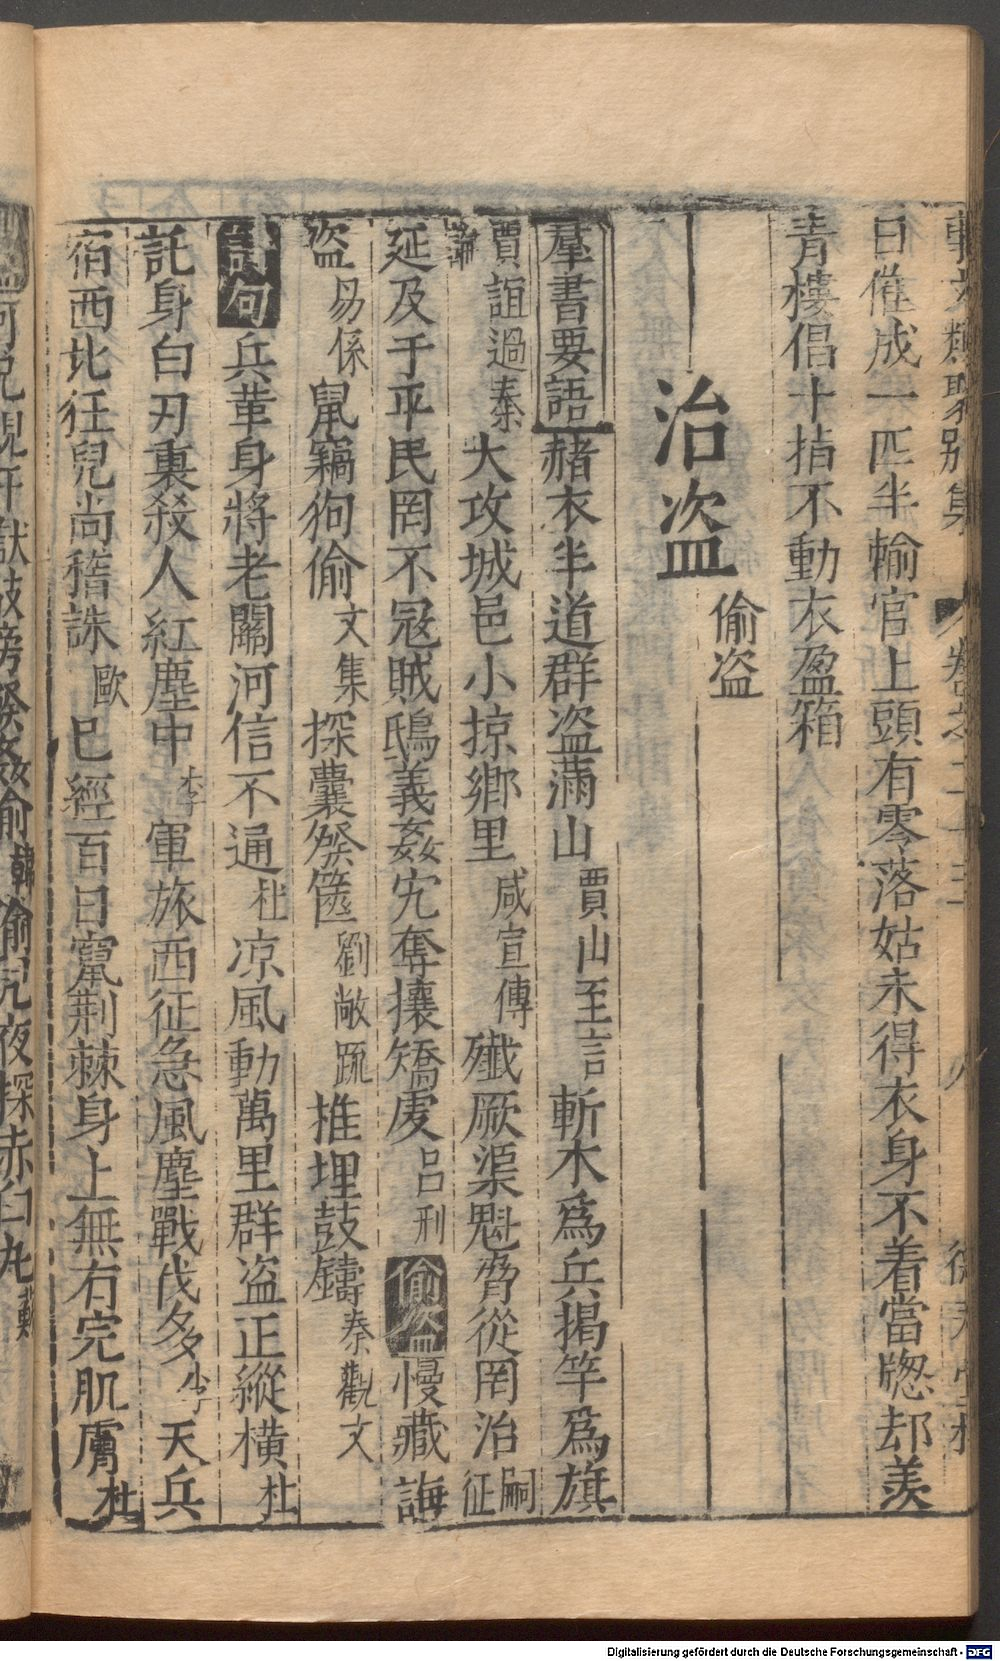 日催成一匹半輸官上頭有零落姑未得衣身不着當牕却羨
青樓倡十指不動衣盈箱
治盗
偷盗
羣書要語 赭衣半道群盗滿山 賈山至言 斬木爲兵揭竿爲旗
賈誼過秦論 大攻城邑小掠鄉里 咸宣傳 殲厥渠魁脅從罔治 嗣征
延及于平民罔不冦賊鴟義姦宄奪攘矯虔 吕刑 偷盗 慢藏誨
盗 易係 鼠竊狗偷 文集 探囊發篋 劉敞䟽 推埋鼓鑄 秦觀文
詩句 兵革身將老關河信不通 杜 凉風動萬里群盗正縱横 杜
託身白刃裏殺人紅塵中 李 軍旅西征急風塵戰伐多 李 天兵
宿西北狂兒尚稽誅 歐 已經百日竄荆棘身上無有完肌膚 杜
偷 韓 偷兒夜探赤白丸 蘇
Digitalisierung gefördert durch die Deutsche Forschungsgemeinschaft - DFG